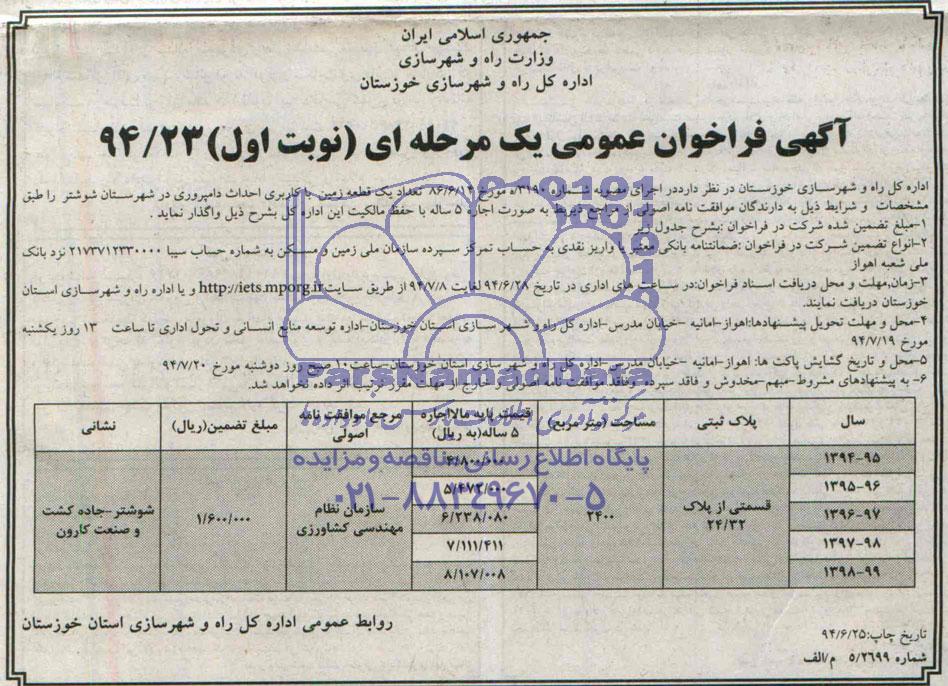 جمهوری اسلامی ایران
وزارت راه و شهرسازی
اداره کل راه و شهرسازی خوزستان
آگهی فراخوان عمومی یک مرحله ای (نوبت اول) ۹۴/۲۳
اداره کل راه و شهرسازی خوزستان در نظر دارددر اجرای مصوبه شماره ۵/۳۱۹۰ مورخ ۸۶/۶/۱۴ تعداد یک قطعه زمین با کاربری احداث دامپروری در شهرستان شوشتر را طبق
مشخصات و شرایط ذیل به دارندگان موافقت نامه اصولی از مراجع ذیربط به صورت اجاره ۵ ساله با حفظ مالکیت این اداره کل بشرح ذیل واگذار نماید .
۱-مبلغ تضمین شده شرکت در فراخوان :بشرح جدول زیر
۲-انواع تضمین شرکت در فراخوان :ضمانتنامه بانکی معتبر یا واریز نقدی به حساب تمرکز سپرده سازمان ملی زمین و مسکن به شماره حساب سیبا ۲۱۷۳۷۱۲۳۳۰۰۰۰ نزد بانک
ملی شعبه اهواز
۳-زمان,مهلت و محل دریافت اسناد فراخوان:در ساعت های اداری در تاریخ ۹۴/۶/۲۸ لغایت ۹۴/۷/۸ از طریق سایت http://iets.mporg.ir و یا اداره راه و شهرسازی استان
خوزستان دریافت نمایند.
۴-محل و مهلت تحویل پیشنهادها:اهواز-امانیه -خیابان مدرس-اداره کل راه و شهر سازی استان خوزستان-اداره توسعه منابع انسانی و تحول اداری تا ساعت ۱۳ روز یکشنبه
مورخ ۹۴/۷/۱۹
۵-محل و تاریخ گشایش پاکت ها: اهواز-امانیه -خیابان مدرس -اداره کل راه و شهر سازی استان خوزستان-ساعت ۱۰ صبح روز دوشنبه مورخ ۹۴/۷/۲۰
۶- به پیشنهادهای مشروط-مبهم-مخدوش و فاقد سپرده وفاقد موافقت نامه اصولی و خارج از مهلت مقرر ترتیب اثر داده نخواهد شد.
ParsNamadData
پایگاه اطلاع رسانی مناقصه و مزایده
۰۲۱-۸۸۳۴۹۶۷۰-۵
سال پلاک ثبتی مساحت (متر مربع) قیمت پایه مالااجاره ۵ ساله(به ریال) مرجع موافقت نامه اصولی مبلغ تضمین(ریال) نشانی
۱۳۹۴-۹۵ ۴/۸۰۰/۰۰۰
۱۳۹۵-۹۶ ۵/۴۷۲/۰۰۰
۱۳۹۶-۹۷ قسمتی از پلاک ۲۴/۳۲ ۲۴۰۰ ۶/۲۳۸/۰۸۰ سازمان نظام مهندسی کشاورزی ۱/۶۰۰/۰۰۰ شوشتر-جاده کشت و صنعت کارون
۱۳۹۷-۹۸ ۷/۱۱۱/۴۱۱
۱۳۹۸-۹۹ ۸/۱۰۷/۰۰۸
روابط عمومی اداره کل راه و شهرسازی استان خوزستان
تاریخ چاپ:۹۴/۶/۲۵
شماره ۵/۲۶۹۹ م/الف